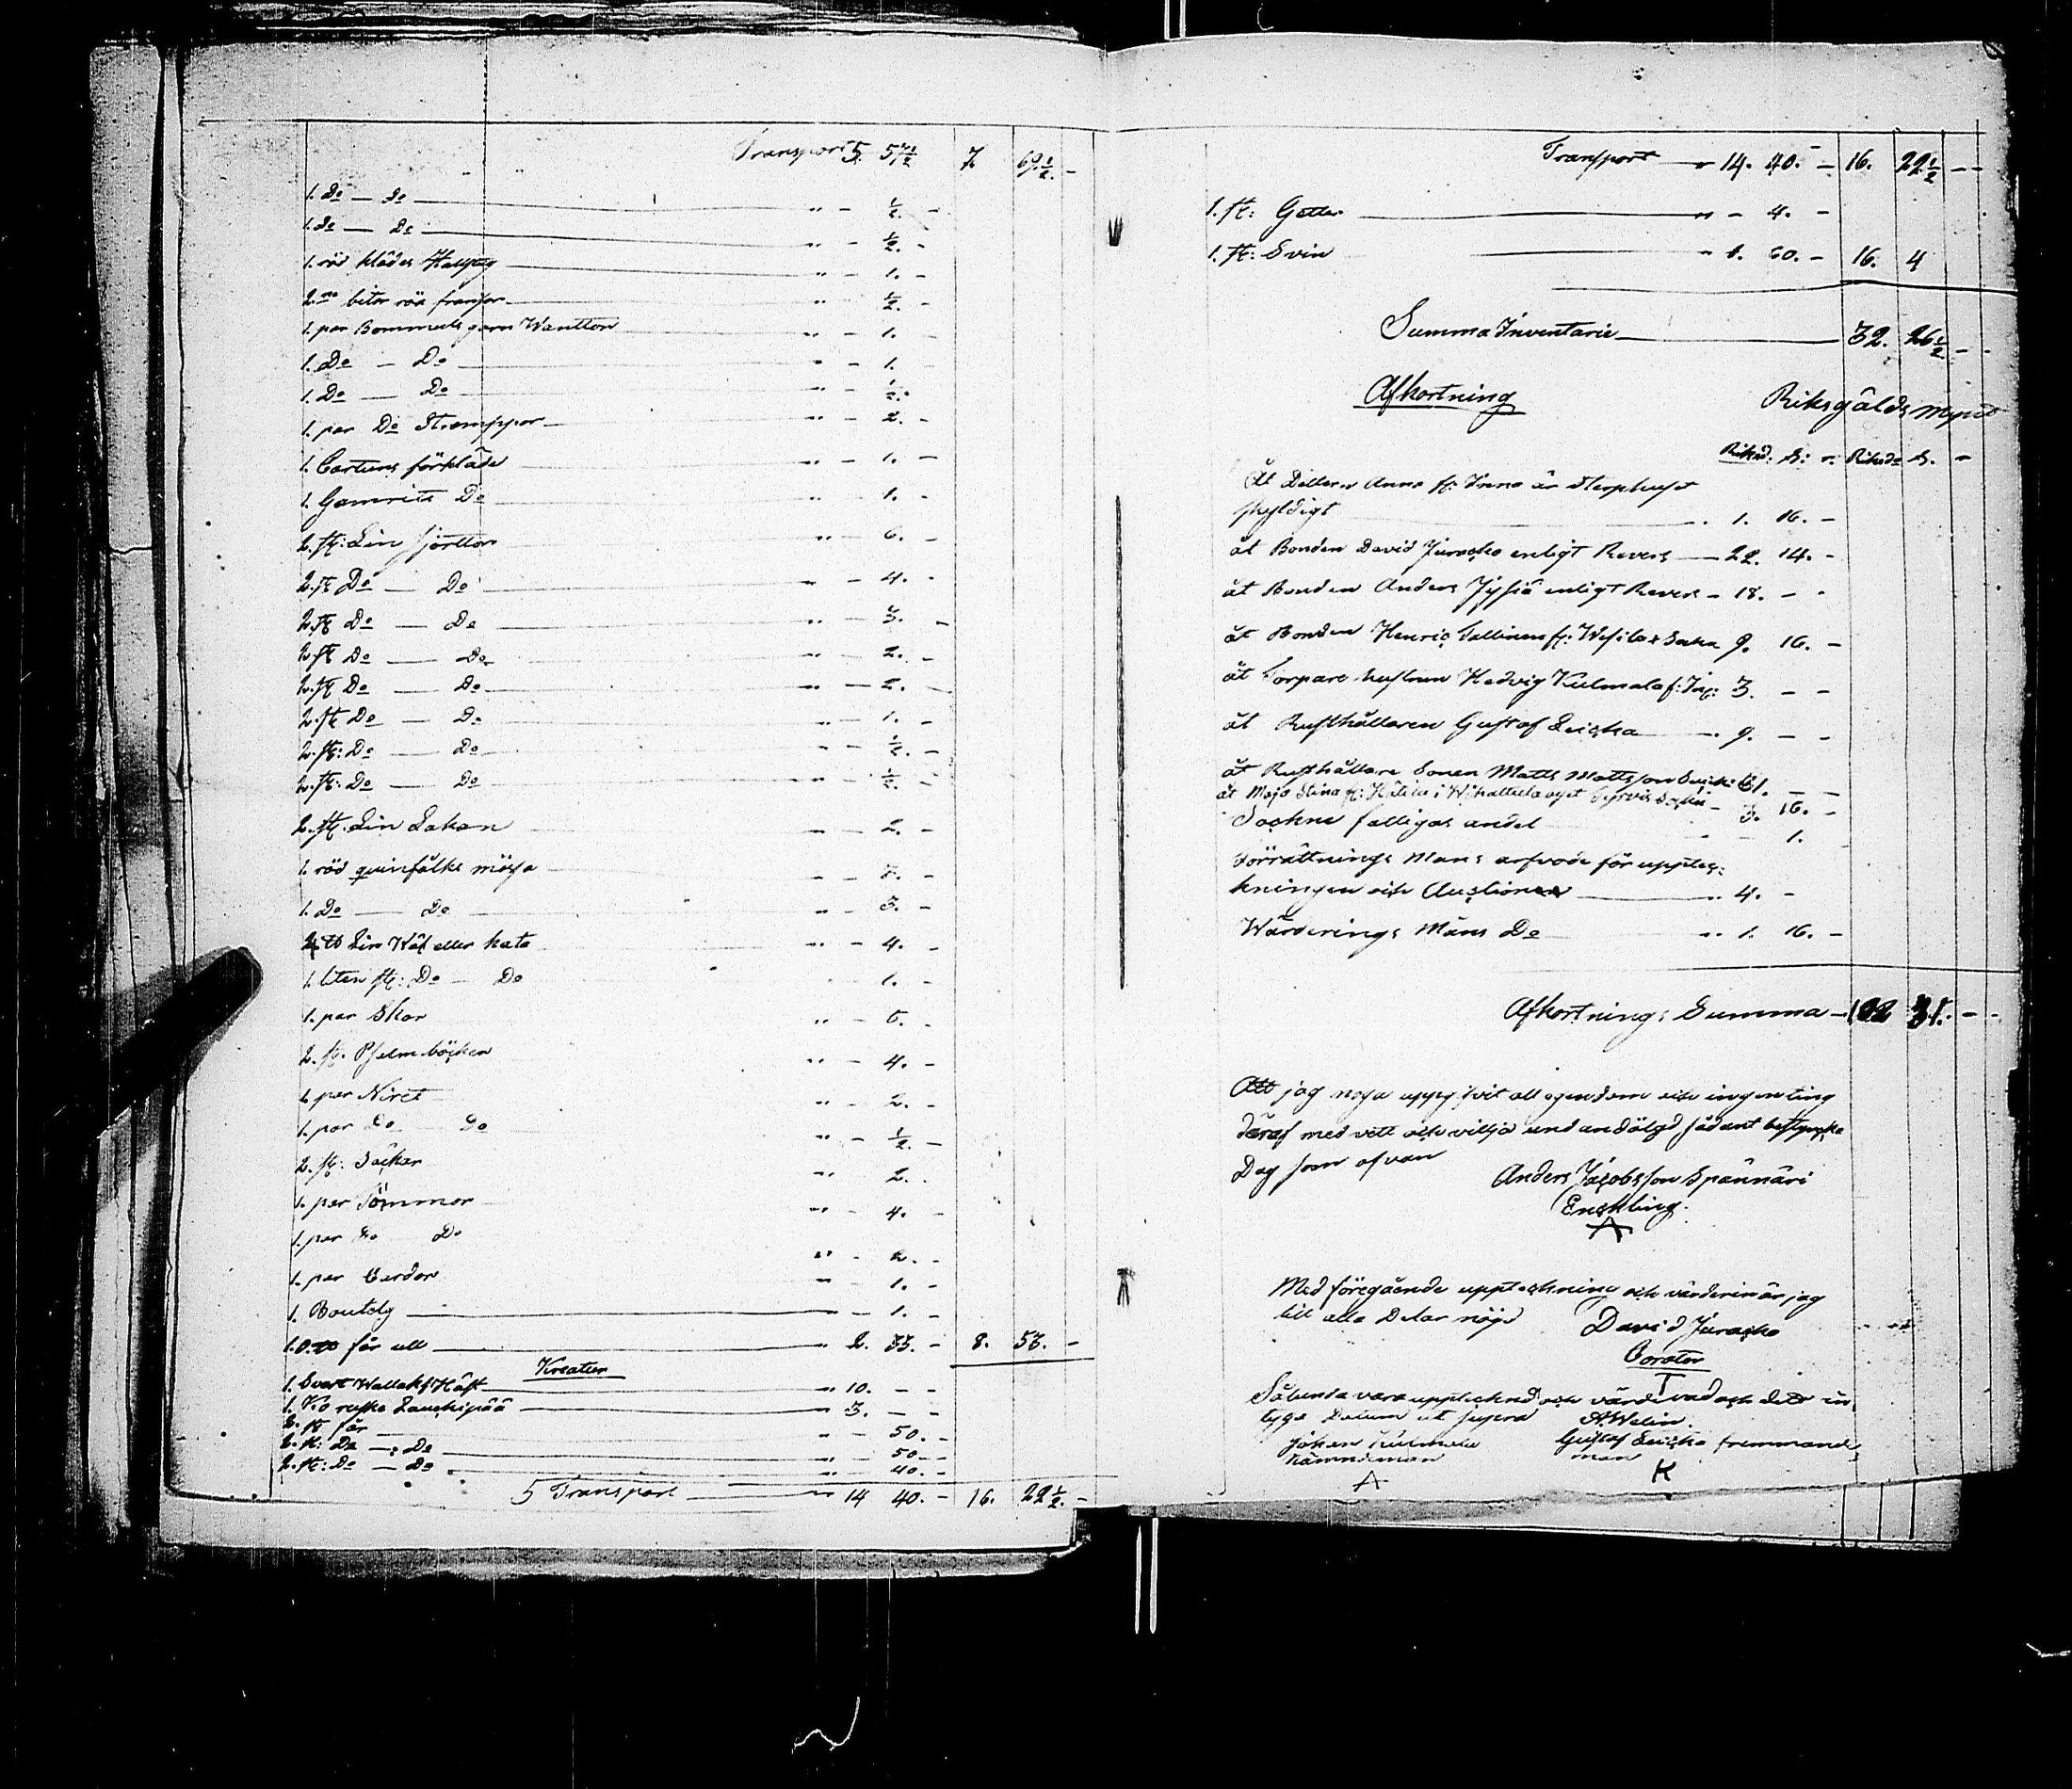 Transport 5. 57½ 7. 69½. -
1. Do — do " - ½. -
1. do — Do " - ½. -
1. röd klädes " - 1. -
2ne bitar röda fransar " - ½. -
1. par Bommuls garn Wantton " - 1. -
1. Do — Do " - 1. -
1. Do — Do " - ½. -
1. par Do Strømppor " - 2. -
1. Cartuns förkläde " - 1. -
1. Do " - 1. -
2. st: Lin " - 6. -
2. st Do — Do " - 4. -
2. st Do — Do " - 3. -
2. st Do — Do " - 2. -
2. st Do — Do " - 2. -
2. st Do — Do " - 1. -
2. st: Do — Do " - ½. -
2. st: Do — Do " - ½. -
2. st. Lin Lakan " - 2. -
1. röd quinfålks mössa " - 7. -
1. Do — Do " - 3. -
Lin eller " - 4. -
1. liten st: Do — Do - 1. -
1. par Skor " - 6. -
2. st. Psalm böcker " - 4. -
1. par Niret " - 2. -
1. par Do Do " - ½. -
2. st: Säckar " 2. -
1. par Tömmor " - 4. -
1. par Do Do " - 2. -
1. par Cardor " - 1. -
1. " - 1. -
får ull " 2. 33. - 8. 53. -
Kreatur
1. Svart Wallak Häst " 10. - -
1. Ko Lauckipää " 3. - -
2. st får " - 50. -
2. st: Do — Do 50 -
2. st: Do — Do " 40. -
5 Transport " 14 40. - 16. 22½. -
Transport " 14. 40. - 16. 22½ - -
1. st: Getter " - 4. -
1. st: Svin " 1. 60. - 16. 4
Summa Inventarie 32. 26½ - -
Afkortning Riksgälds mynt
Riksd: s: r: Riksd s. -
Åt Anna är Sterbhuset
skyldigt " 1. 16. -
åt Bonden David Juracko enligt Revers 22. 14. -
åt Bonden Anders enligt Revers 18. - -
åt Bonden Henric 9. 16. -
åt Torpare hustrun Hedvig Kulmala 3. - -
åt Rusthållaren Gustaf Leicka " 9. - -
åt Rusthållare Sonen Matts Mattsson 61. - -
åt Maja Stina i 3. 16. -
Sockne fattigas andel " - 1.
Förrättnings Mans arfvode för upptec:
kningen och Auctionen " 4. -
Wärderings Mäns Do " 1. 16. -
Afkortnings Summa 132 31. - -
Att jag noga uppgifvit all egendom och ingenting
deraf med vett och vilja undandölgd sådant
Dag som ofvan Anders Jacobsson Spännäri
Enckling.
Med föregående uppteckning och är jag
till alla Delar nögd David Juracko
Corator
Sålunda vara upptecknad och värderad och det in
tyga Datum ut supra A. Welin.
Johan Kulmala Gustaf Leicka
Nämndeman man